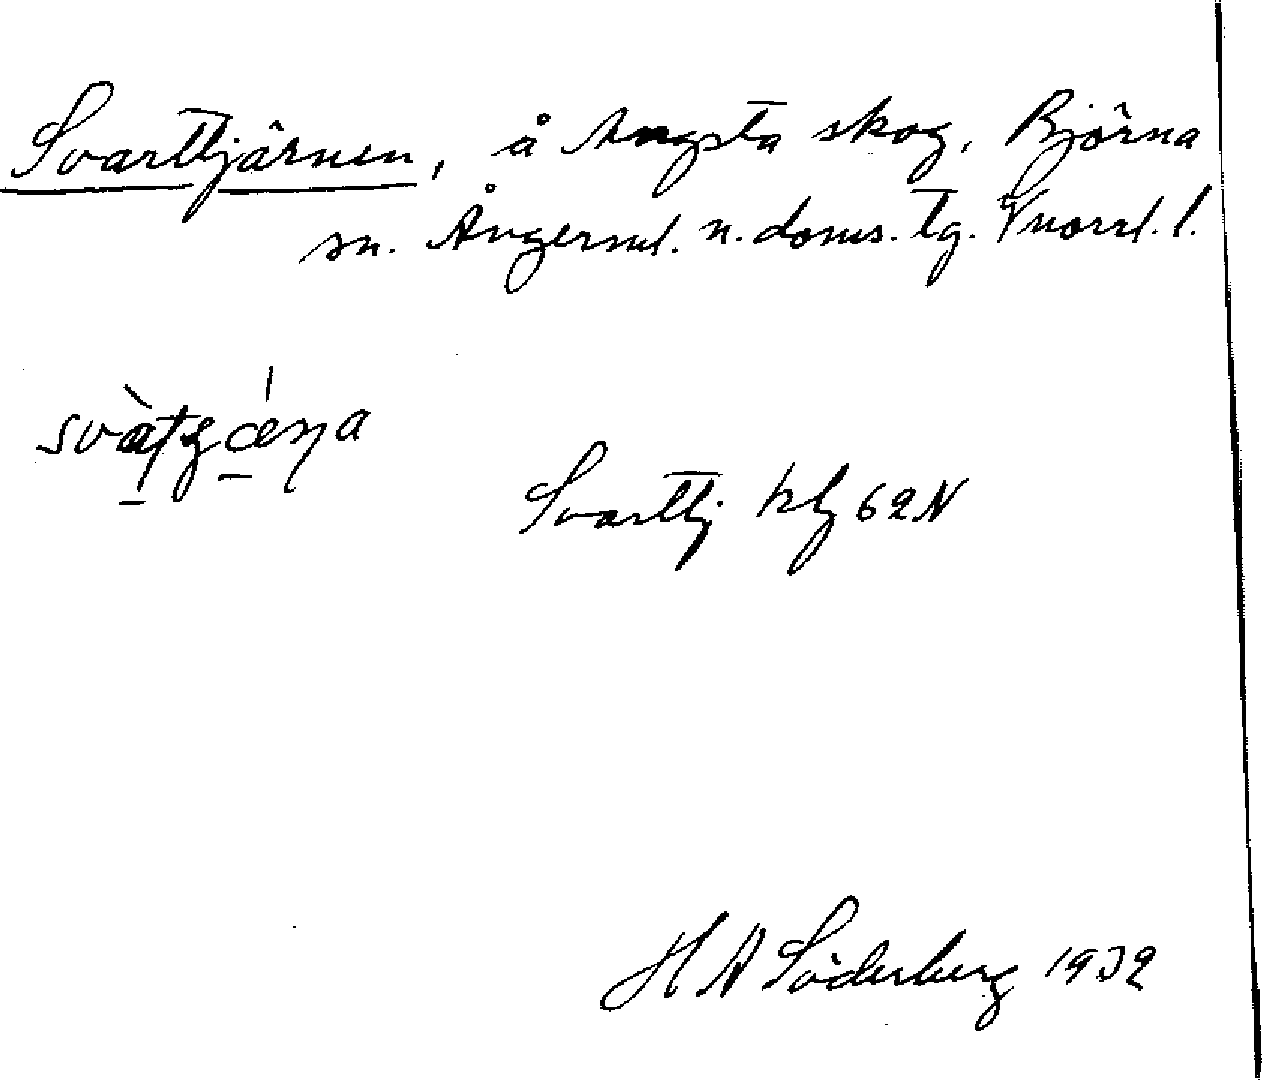 Svarttjärnen, å Angsta skog, Björna
sn. Ångerml. n. doms. tg. Vnorrl. l.
Svarttj hlg 62N
H A Söderberg 1932